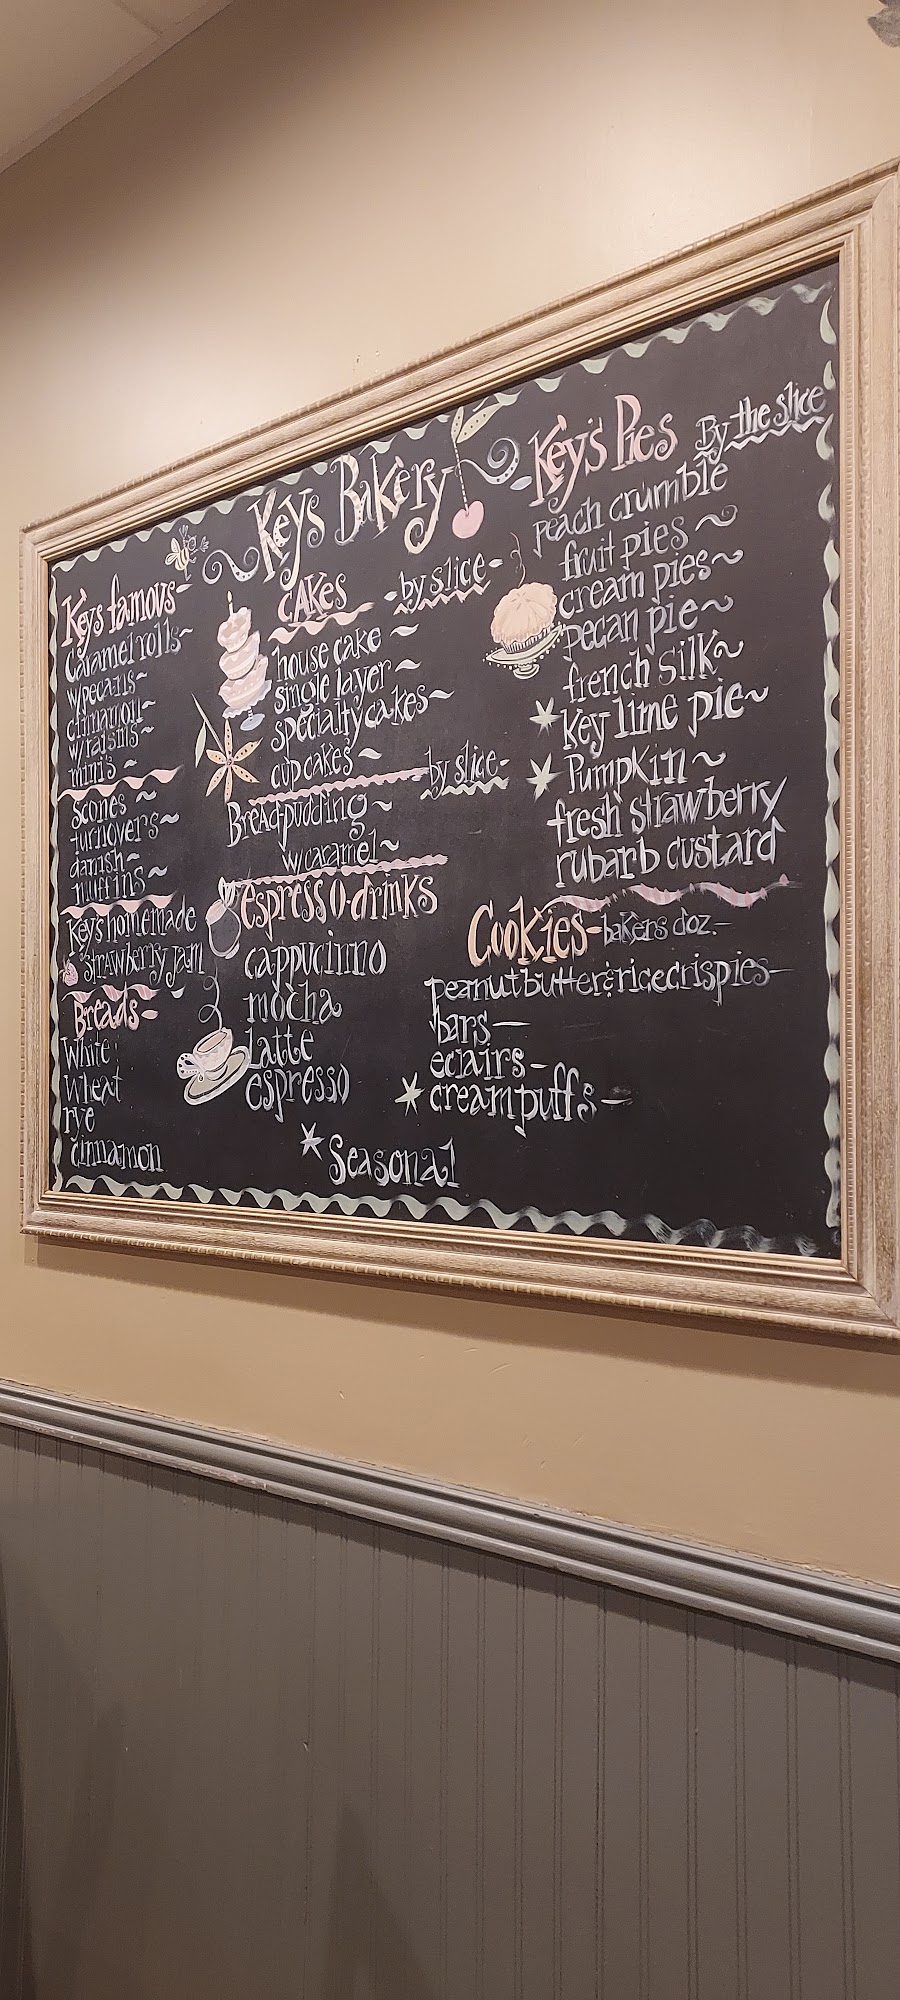 Keys Bakery
Keys famous-
Caramel rolls~
w/pecans~
cinnamon~
w/raisins~
mini's ~
Scones ~
turnovers~
danish~
muffins~
Key's homemade
strawberry jam
Breads-
White
Wheat
rye
cinnamon
CAKes -by slice-
house cake ~
single layer ~
specialty cakes~
cup cakes ~
-by slice-
BreAd-pudding~
w/caramel~
espresso-drinks
cappucinno
mocha
Latte
espresso
Key's Pies By the slice
peach crumble
fruit pies ~
cream pies~
pecan pie~
french silk~
Key lime pie~
Pumpkin~
fresh strawberry
rubarb custard
Cookies-bakers doz.-
peanutbutter&ricecrispies-
bars-
eclairs-
creampuffs-
Seasonal